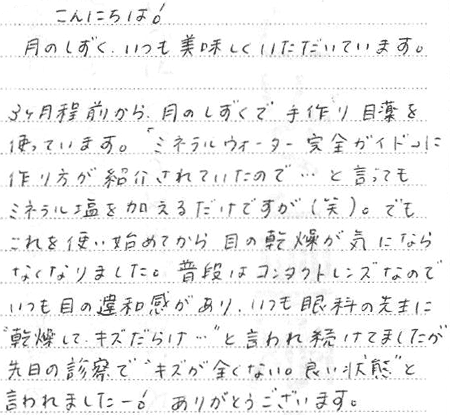 こんにちは!
月のしずく、いつも美味しくいただいています。
3ヶ月程前から、月のしずくで手作り目薬を
使っています。「ミネラルウォーター完全ガイド」に
作り方が紹介されていたので…と言っても
ミネラル塩を加えるだけですが(笑)。でも
これを使い始めてから目の乾燥が気になら
なくなりました。普段はコンタクトレンズなので
いつも目の違和感があり、いつも眼科の先生に
"乾燥して、キズだらけ…"と言われ続けてましたが
先日の診察で"キズが全くない。良い状態"と
言われましたー! ありがとうございます。